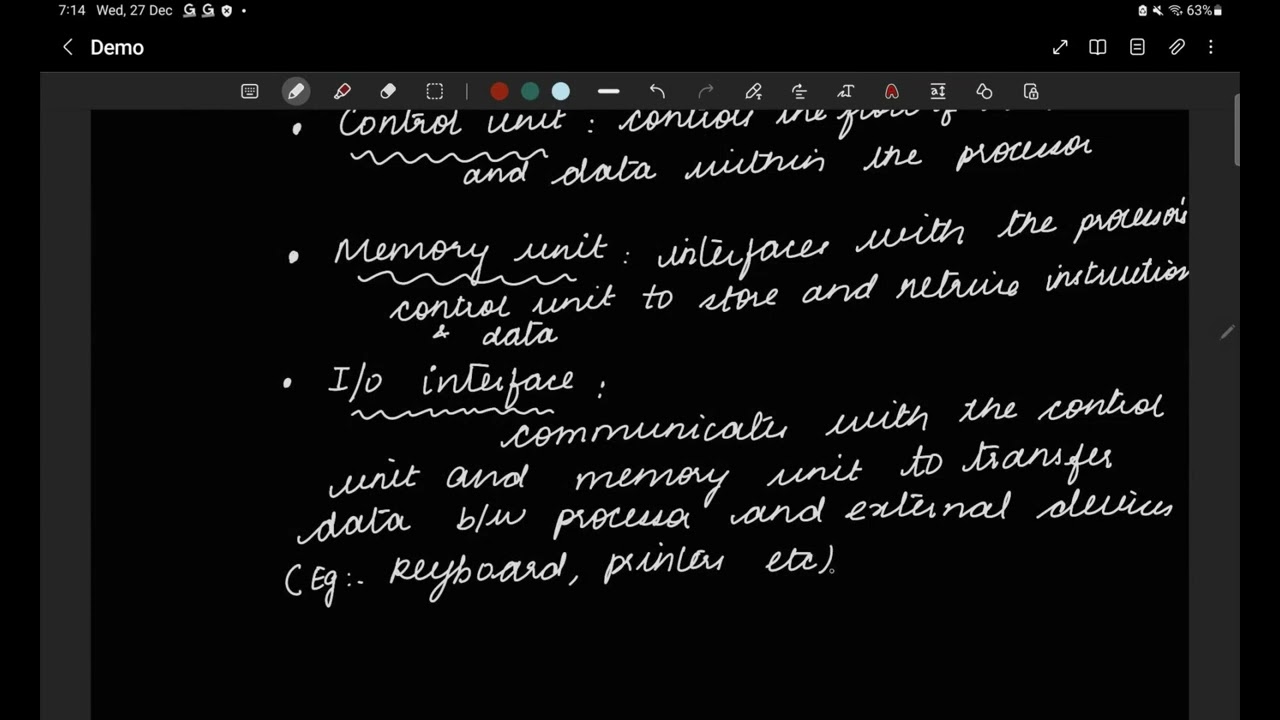 7:14 Wed, 27 Dec G G
63%
Demo
• Control unit : controls the flow of
and data within the processor
• Memory unit : interfaces with the processor's
control unit to store and retrieve instruction
& data
• I/O interface :
communicates with the control
unit and memory unit to transfer
data b/w processor and external devices
(Eg:- Keyboard, printers etc).